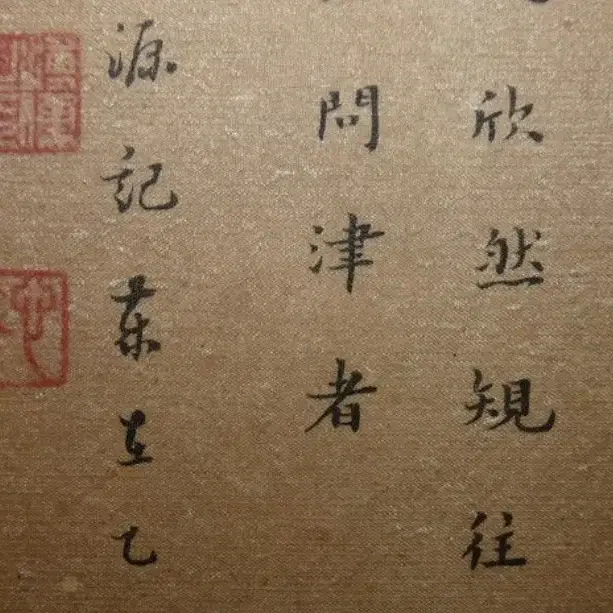 欣然規往
問津者
源記歲在乙